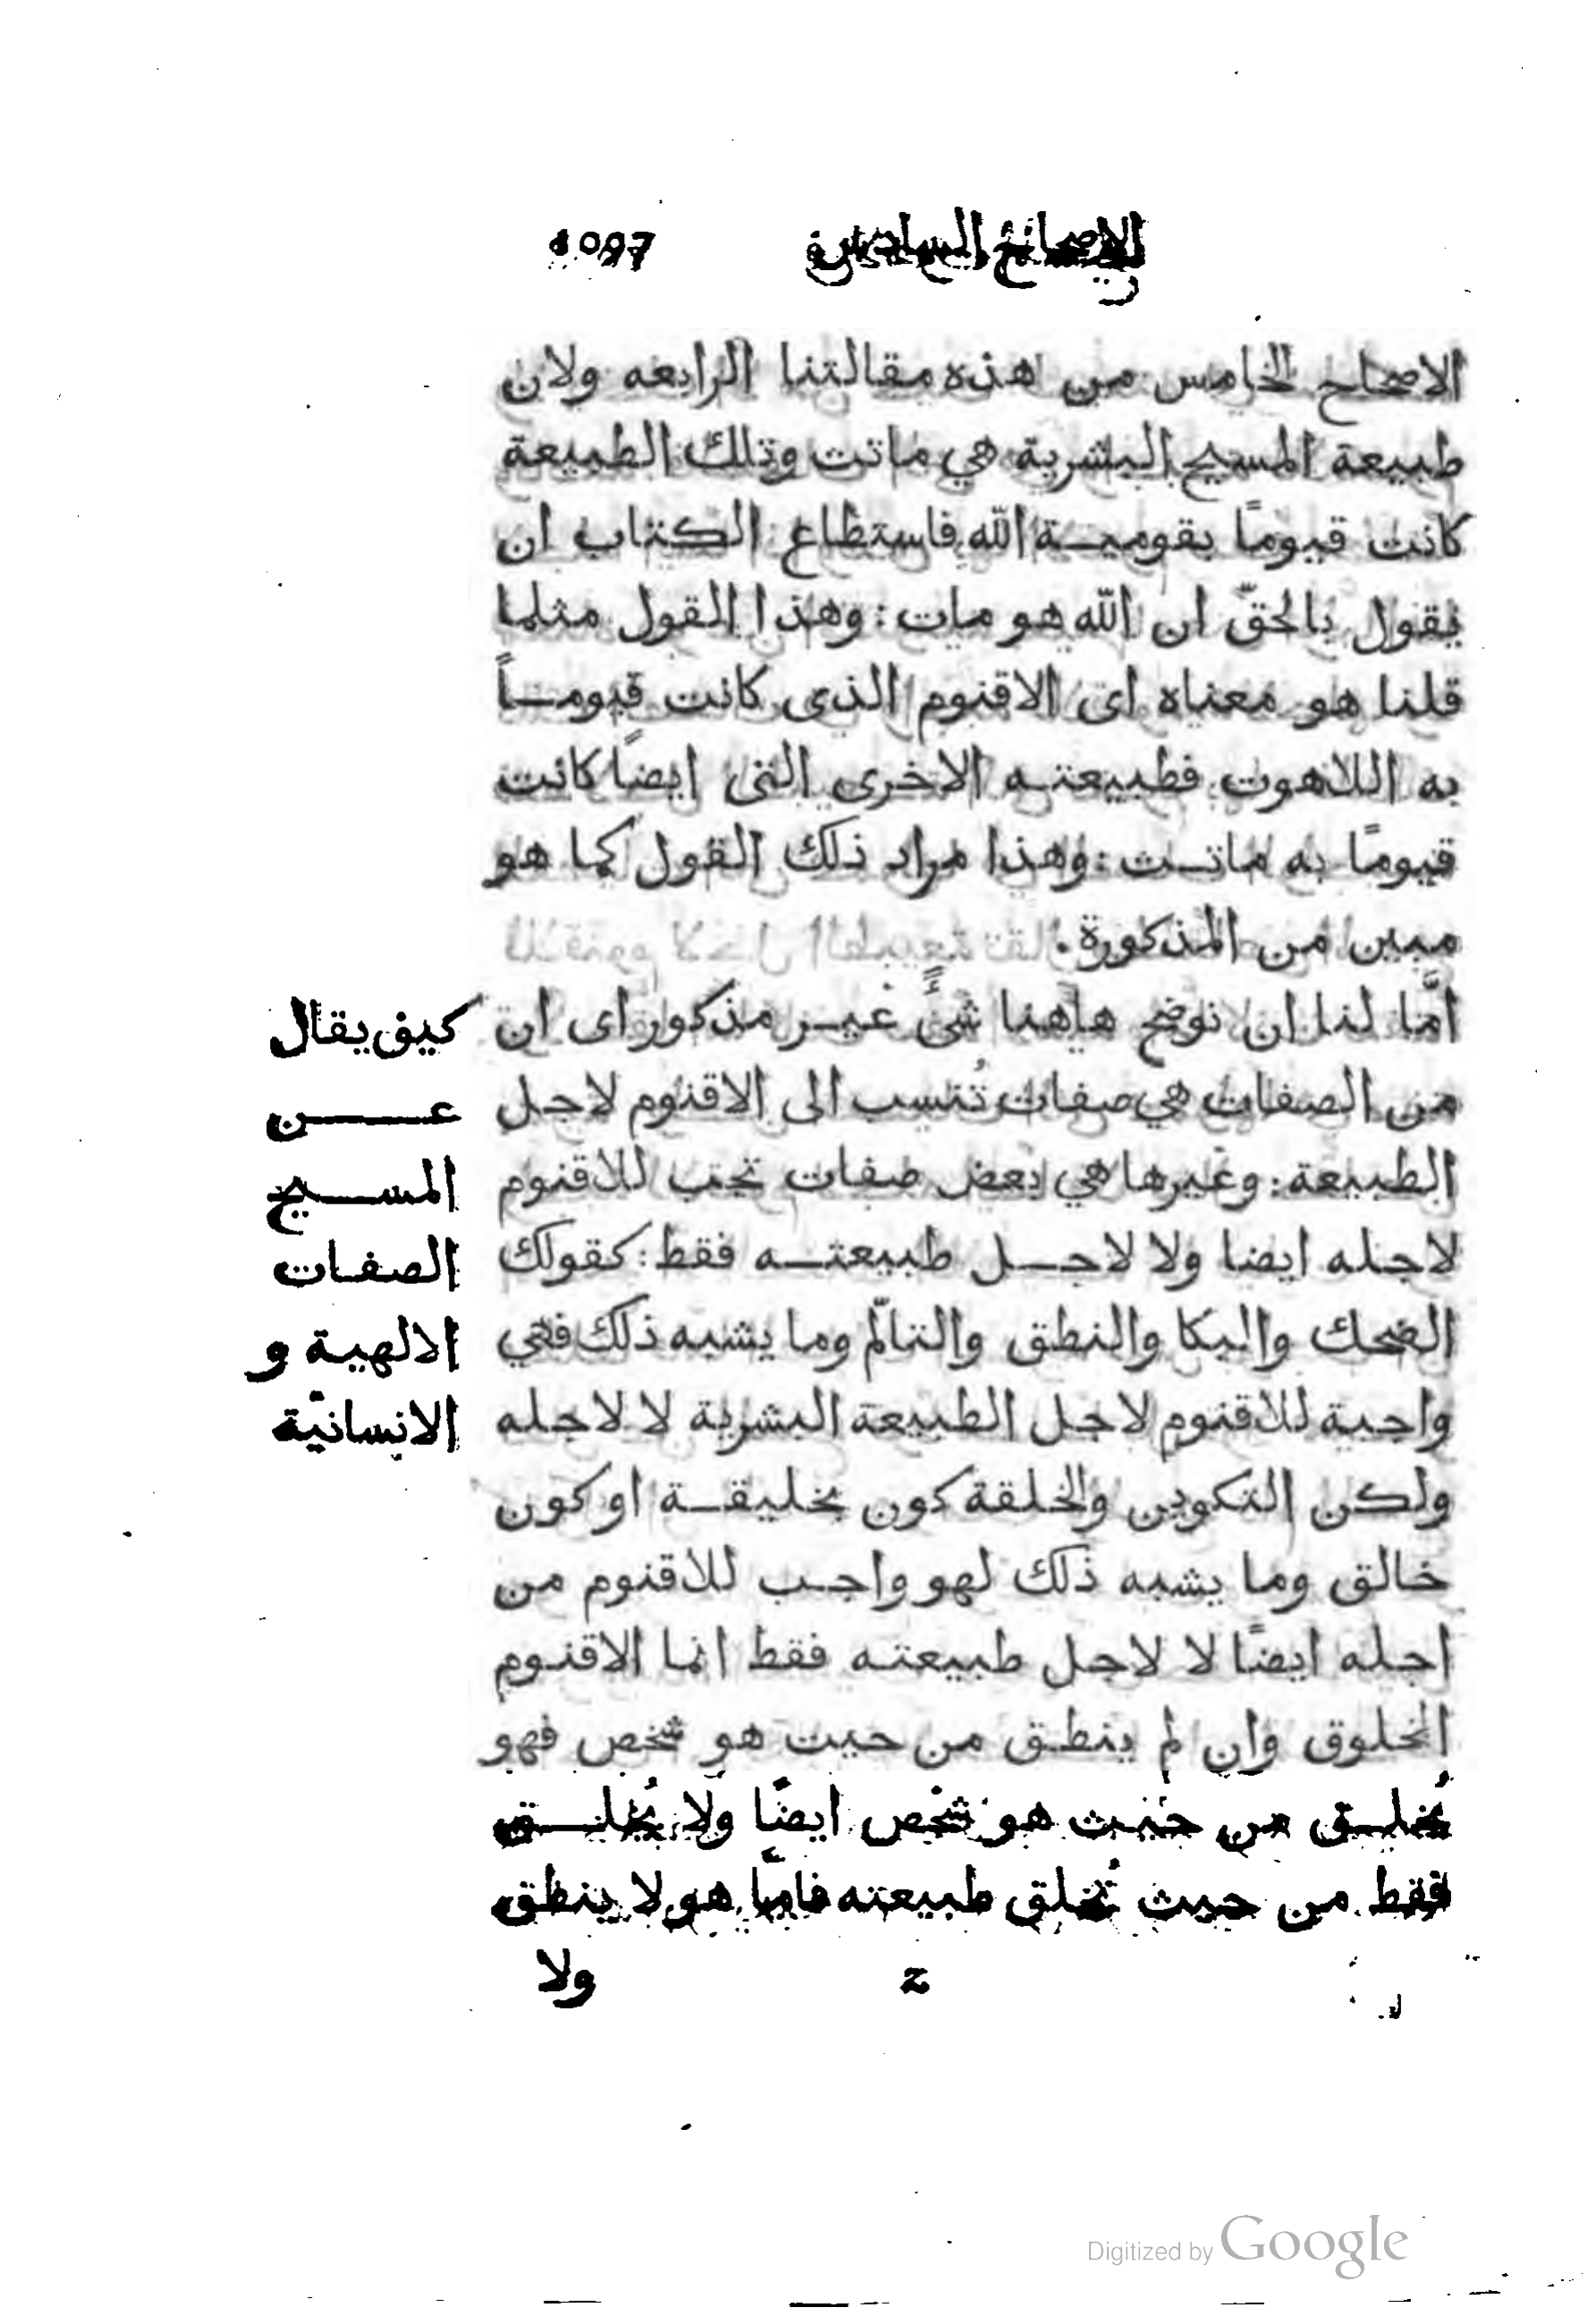 الاصحاح السادس 1097
الاصحاح الخامس من هذه مقالتنا الرابعه ولان
طبيعة المسيح البشرية هي ماتت وتلك الطبيعة
كانت قيومًا بقوميـة الله فاستطاع الكتاب ان
يقول بالحقّ ان الله هو مات : وهذا القول مثلما
قلنا هو معناه اى الاقنوم الذى كانت قيومـاً
به اللاهوت فطبيعتـه الاخرى التى ايضًا كانت
قيومًا به ماتـت : وهذا مراد ذلك القول كما هو
مبين من المذكورة .
امّا لنا ان نوضح هاهنا شئً غيـر مذكور اى ان
من الصفات هي صفات تُنسب الى الاقنوم لاجل
الطبيعة : وغيرها هي بعض صفات تجب للاقنوم
لاجله ايضا ولا لاجـل طبيعتـه فقط : كقولك
الضحك والبكا والنطق والتالّم وما يشبه ذلك فهي
واجبة للاقنوم لاجل الطبيعة البشرية لا لاجله
ولكن التكوين والخلقة كون بخليقـة او كون
خالق وما يشبه ذلك لهو واجب للاقنوم من
اجله ايضًا لا لاجل طبيعتـه فقط انما الاقنوم
المخلوق وان لم ينطق من حيث هو شخص فهو
يُخلـق من حيث هو شخص ايضًا ولا يُخلـق
فقط من حيث تُخلق طبيعته فامّا هو لا ينطق
ولا
كيف يقال
عـن
المسـيح
الصفات
الالهية و
الانسانيّة
Digitized by Google